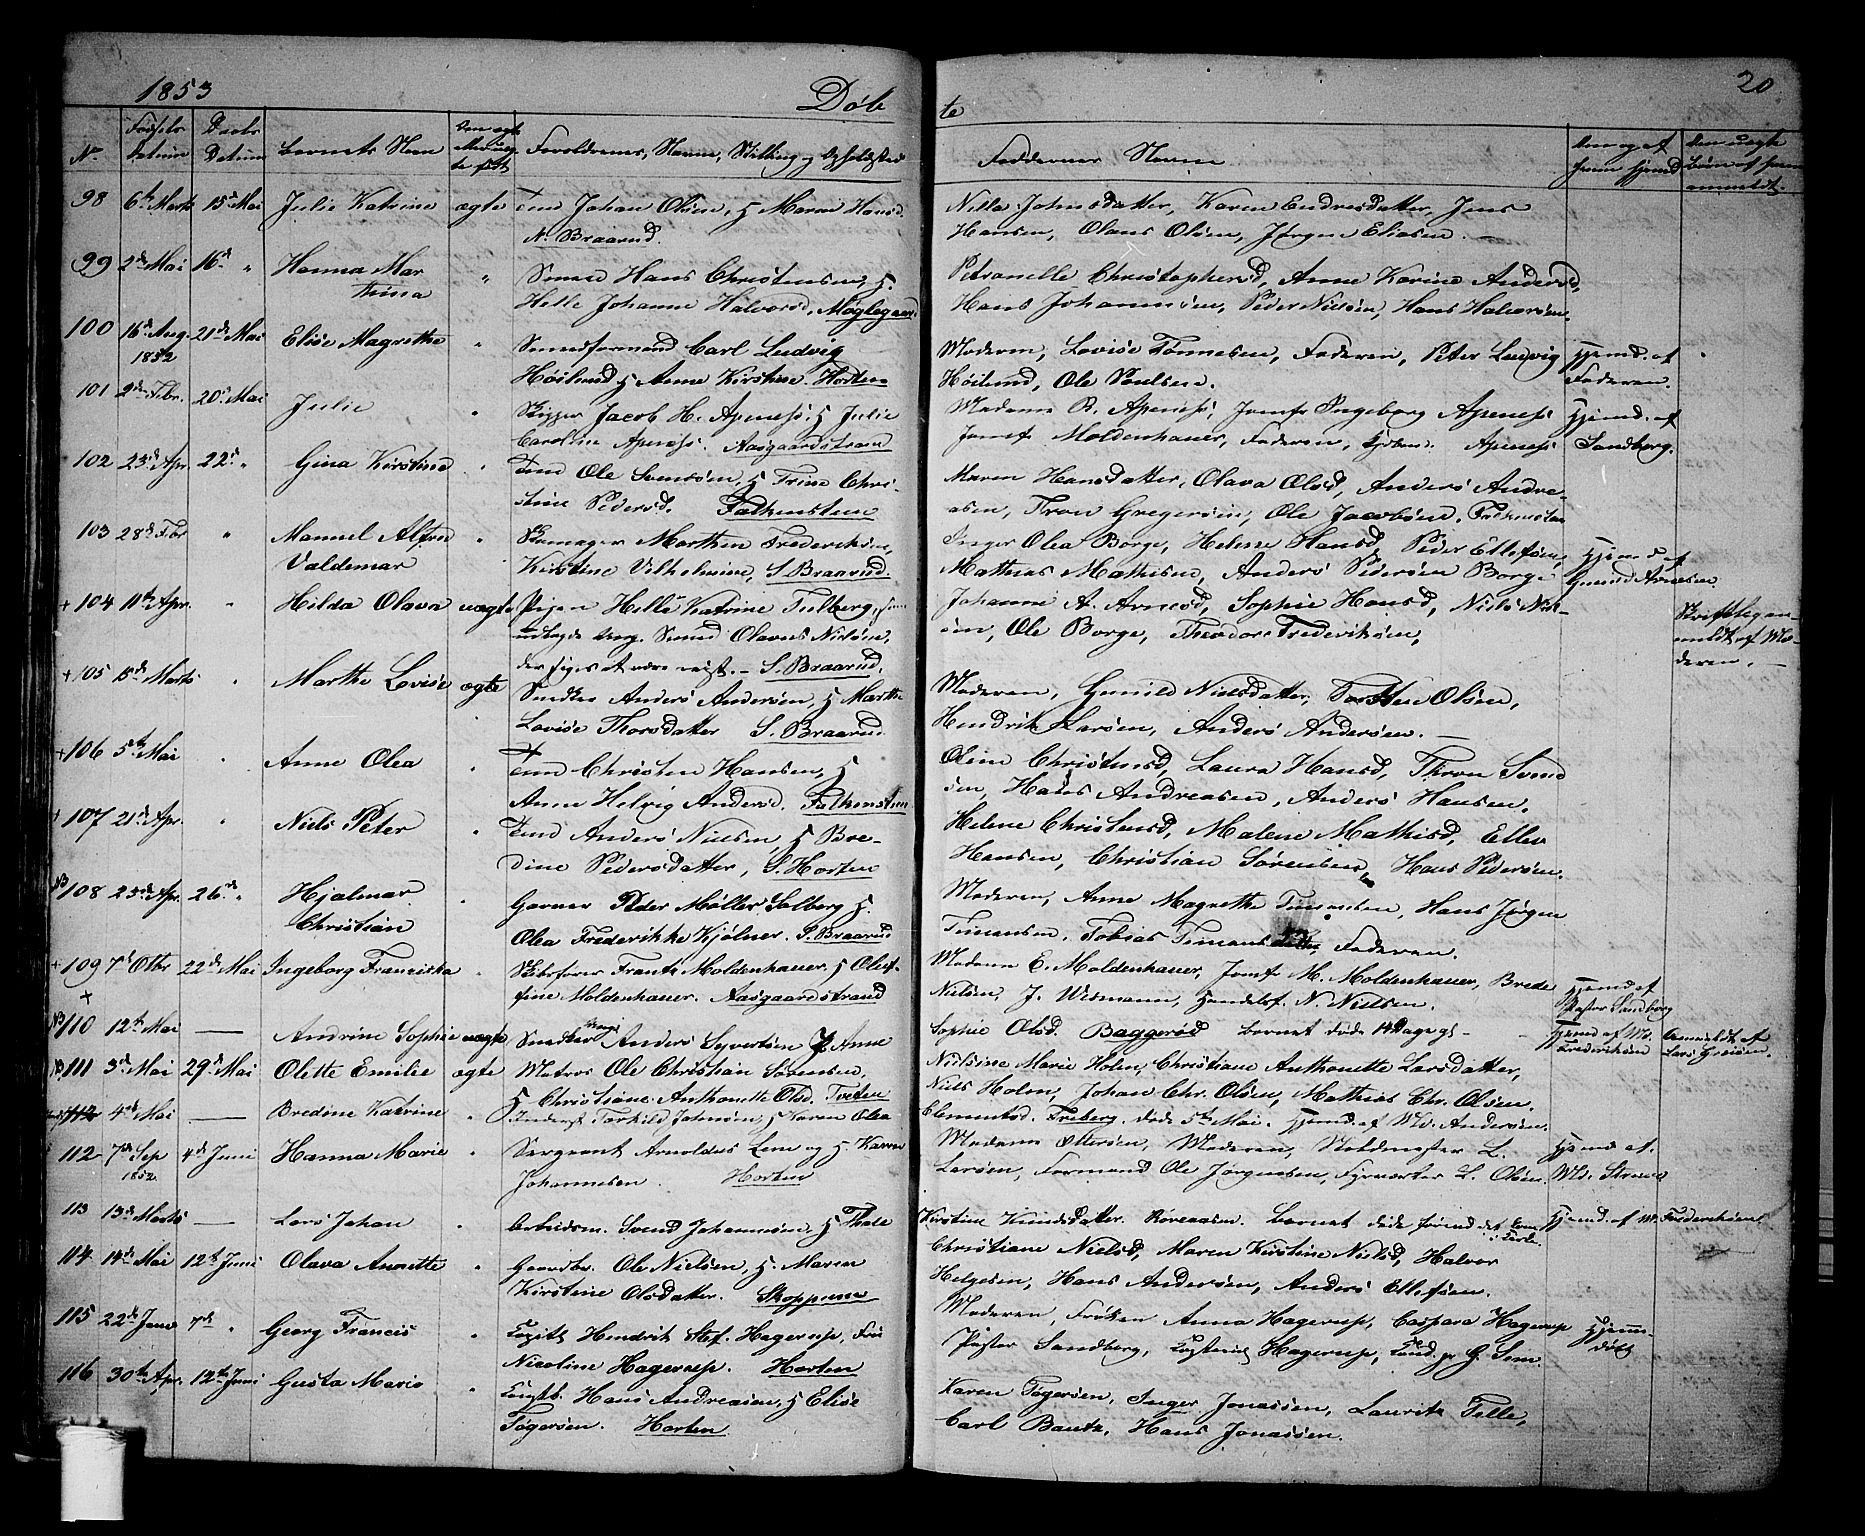 1853 Döb
te 20
No. Fødsels Datum Daabs Datum Barnets Navn Forældrenes, Navne, Stilling og Opholdssted
Faddernes Navne
98 6te Marts 15de Mai Julie Katrine ægte Tmd Johan Olsen, H Maren Hansd.
N. Braarud.
Nilla Johnsdatter, Karen Endresdatter, Jens
Hansen, Olaus Olsen, Jørgen Eliasen. —
99 2de Mai 16de " Hanna Mar " Smed Hans Christensen, H.
thina Helle Johanne Halvorsd, Møglegaard
Petronelle Christophersd, Anne Karine Andersd,
Hans Johannesen, Peder Nielsen, Hans Halvorsen.
100 16de Aug. 21de Mai Elise Magrethe " Smedformand Carl Ludvig
1852 Höilund H Anne Kirstine. Horten
Moderen, Lovise Tønnesen, Faderen, Peter Ludvig
Höilund, Ole Poulsen.
Hjemd. af
Faderen.
101 2den Febr. 20de Mai Julie " Skipper Jacob H. Apeness, H Julie
Caroline Apeness. Aasgaardstrand
Madame B. Apeness, Jomfr Ingeborg Apeness
Jomf. Moldenhauer, Faderen, Apeness
Hjemd. af
Sandberg.
102 23de Apr. 22de " Gina Kirstine " Tmd Ole Svensen, H Trine Chri-
stine Pedersd. Falkensteen
Maren Hansdatter, Olava Olsd, Anders Andre-
asen, Tron Gregersen, Ole Jacobsen. Falkensten
103 28de Febr " Manuel Alfred " Skomager Marthin Frederiksen,
Valdemar Kirstine Vilhelmine, S. Braarud.
Inger Olea Borge, Helene Hansd, Peder Ellefsen,
Mathias Mathisen, Anders Pedersen Borge
Hjemd af
Gmund Arnesen
+ 104 11te Apr. " Hilda Olava uægte Pigen Helle Katrine Tulberg,
Smed Olavus Nielsen,
der siges at være reist. — S. Braarud.
Johanne A. Arnesd, Sophie Hansd, Niels Niel-
sen, Ole Borge, Theodor Frederiksen,
Skriftlig an-
meldt af Mo-
deren. —
+ 105 15de Marts " Marthe Lovise ægte Snedker Anders Andersen, H Marthe
Lovise Thorsdatter S. Braarud
Moderen, Gunild Nielsdatter, Torsten Olsen,
Hendrik Larsen, Anders Andersen. —
+ 106 5te Mai " Anne Olea " Tmd Christen Hansen, H
Anne Helvig Andersd. Falkensteen
Oline Christensd, Laura Hansd, Thron Svend
sen, Hans Andreasen, Anders Hansen.
+ 107 21de Apr. " Niels Peter " Tmd Anders Nielsen, H Bre-
dine Pedersdatter, S. Horten
Helene Christensd, Malene Mathisd, Ellev
Hansen, Christian Sørensen, Hans Pedersen.
NB 108 23de Apr. 26de " Hjalmar " Garver Peder Møller Solberg H.
Christian Olea Frederikke Kjølner. S. Braarud
Moderen, Anne Magrethe Timansen, Hans Jørgen
Timansen, Tobias Timansen, Faderen.
+ 109 7de Otbr 22de Mai Ingeborg Franciska " Skibsfører Frantz Moldenhauer, H Oluf-
fine Moldenhauer. Aasgaardstrand
Madame E. Moldenhauer, Jomfr M. Moldenhauer, Brede
Nielsen, J. Wismann, Handelsf. N. Nielsen.
Hjemd af
Pastor Sandberg
+
NB 110 12te Mai — Andrine Sophie uægte Snedker Anders Syvertsen P Anne
Sophie Olsd. Baggerød Barnet døde 14 Dage gl —
Hjemd af Md.
Frederiksen
Anmeldt af
Lars Greisen.
NB 111 3de Mai 29de Mai Olette Emilie ægte Matros Ole Christian Sørensen,
H Christiane Anthonette Olsd. Tveten
Nielsine Marie Holm, Christiane Anthonette Larsdatter,
Niels Holm, Johan Chr. Olsen, Mathias Chr. Olsen.
112 4de Mai — Bredine Katrine " Inderst Torkild Johnsen, H Karen Olea
Clementsd. Freberg. døde 5te Mai. Hjemd. af Md. Andersen.
112 7de Sep 4de Juni Hanna Marie " Sergeant Arnoldus Lem og H. Karen
1852 Johannesen. Horten
Madame Ottersen, Moderen, Stoldmester L.
Larsen, Formand Ole Jørgensen, Fyrværker L. Olsen.
Hjemd. af.
Md. Strøm
113 13de Marts — Lars Johan " Arbeidsm. Svend Johannesen, H Thale
Kirstine Knudsdatter. Røreaasen. Barnet døde førend det kom i Kirke.
Hjemd. af M. Frederiksen.
114 14de Mai 12te Juni Olava Annette " Gaardbr. Ole Nielsen, H. Maren
Kirstine Olsdatter. Skoppum
Christiane Nielsd, Maren Kirstine Nielsd, Halvor
Helgesen, Hans Andersen, Anders Ellefsen.
115 22de Janu 7de " Georg Francis " Capit. Hendrik Stef. Hagerup, Fru
Nicoline Hagerup. Horten
Moderen, Frøken Anna Hagerup, Caspara Hagerup
Pastor Sandberg, Hagerup, Cand. G. Sem.
Hjemme-
døbt
116 30te Apr. 12te Juni Gusta Marie " Hans Andreasen, H Elise
Togersen. Horten
Karen Togersen, Inger Jonassen, Lauritz Telle,
Carl Bautz, Hans Jonassen.